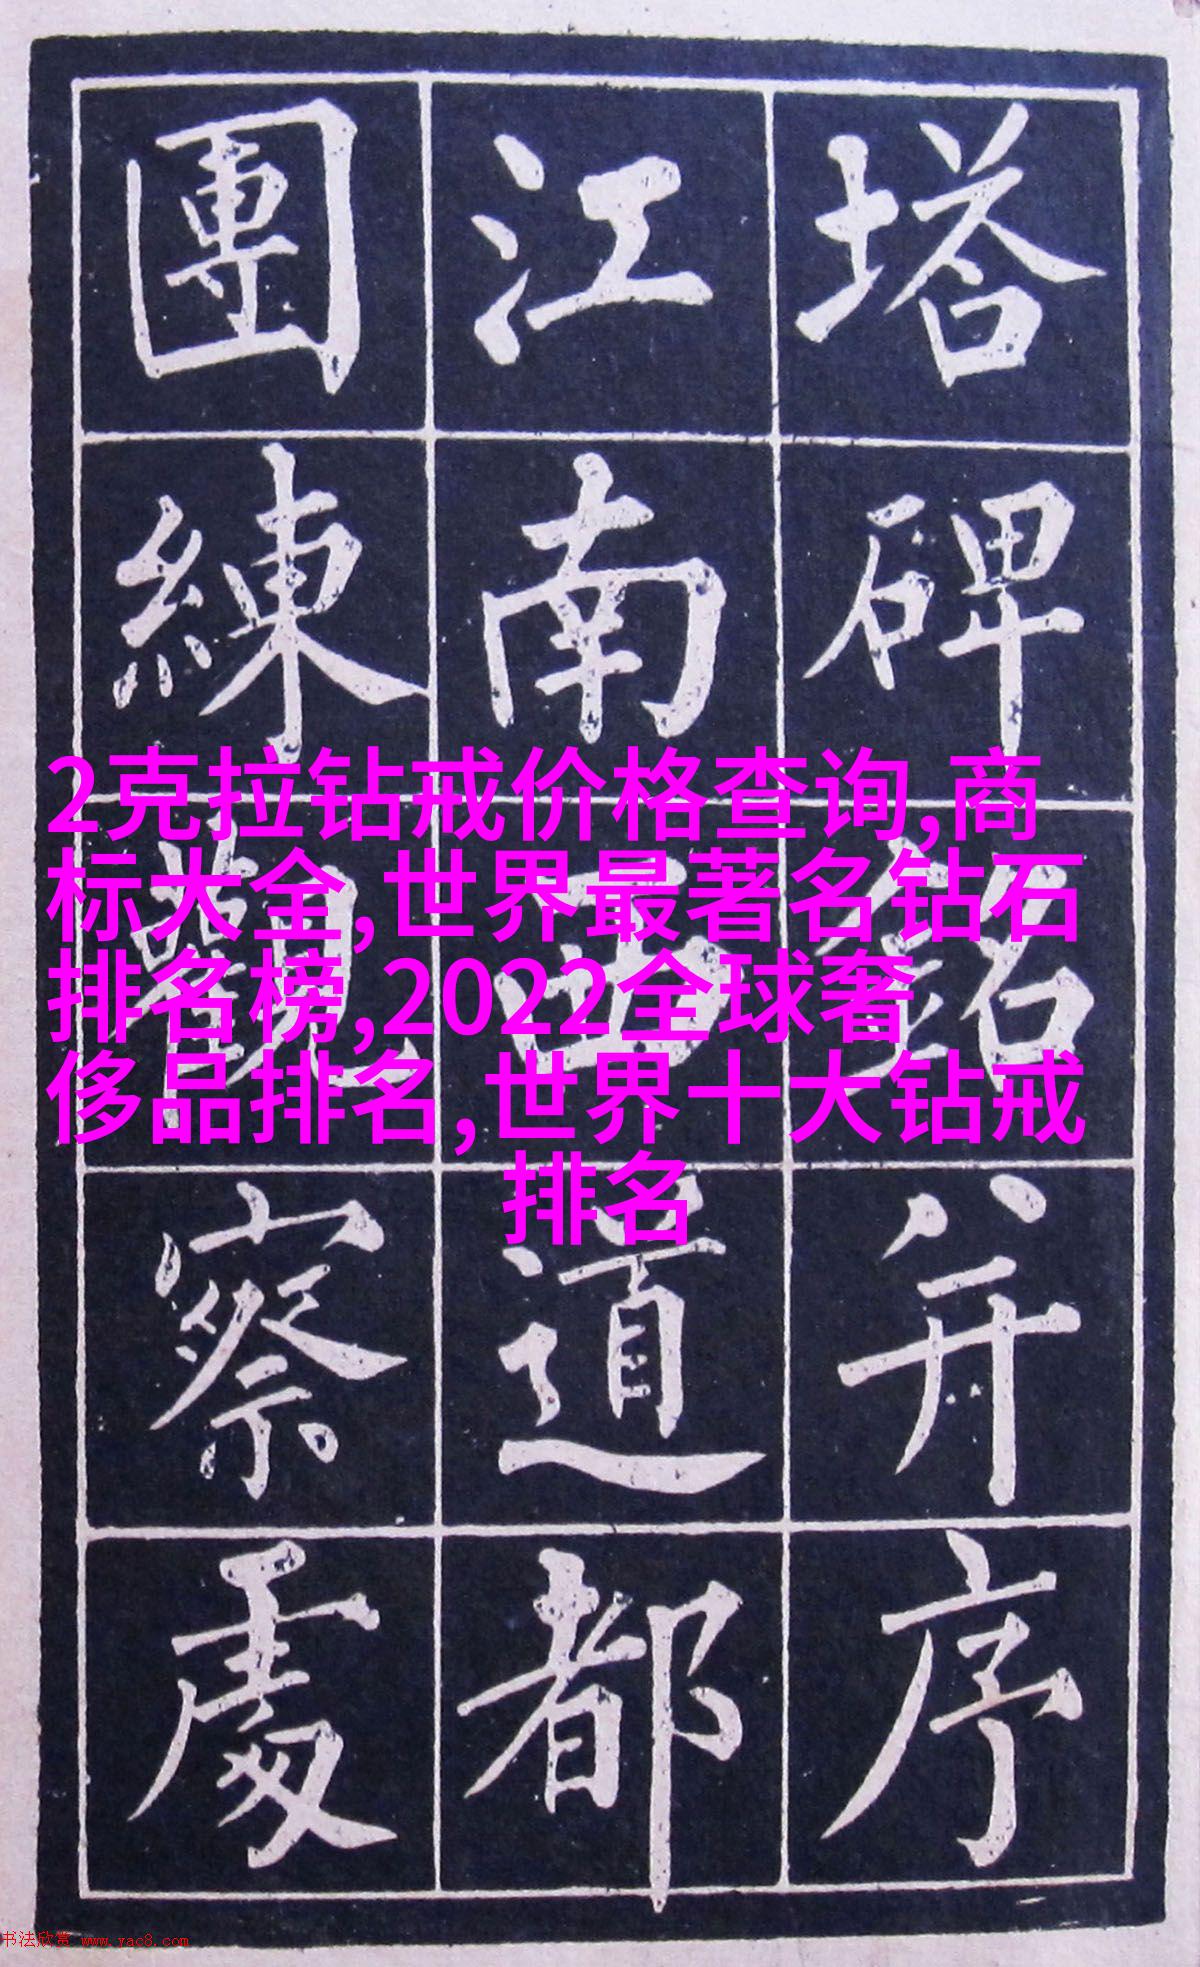 塔碑銘并序
江南西道都
團練觀察處
2克拉钻戒价格查询,商
标大全,世界最著名钻石
排名榜,2022全球奢
侈品排名,世界十大钻戒
排名
书法欣赏 www.yac8.com